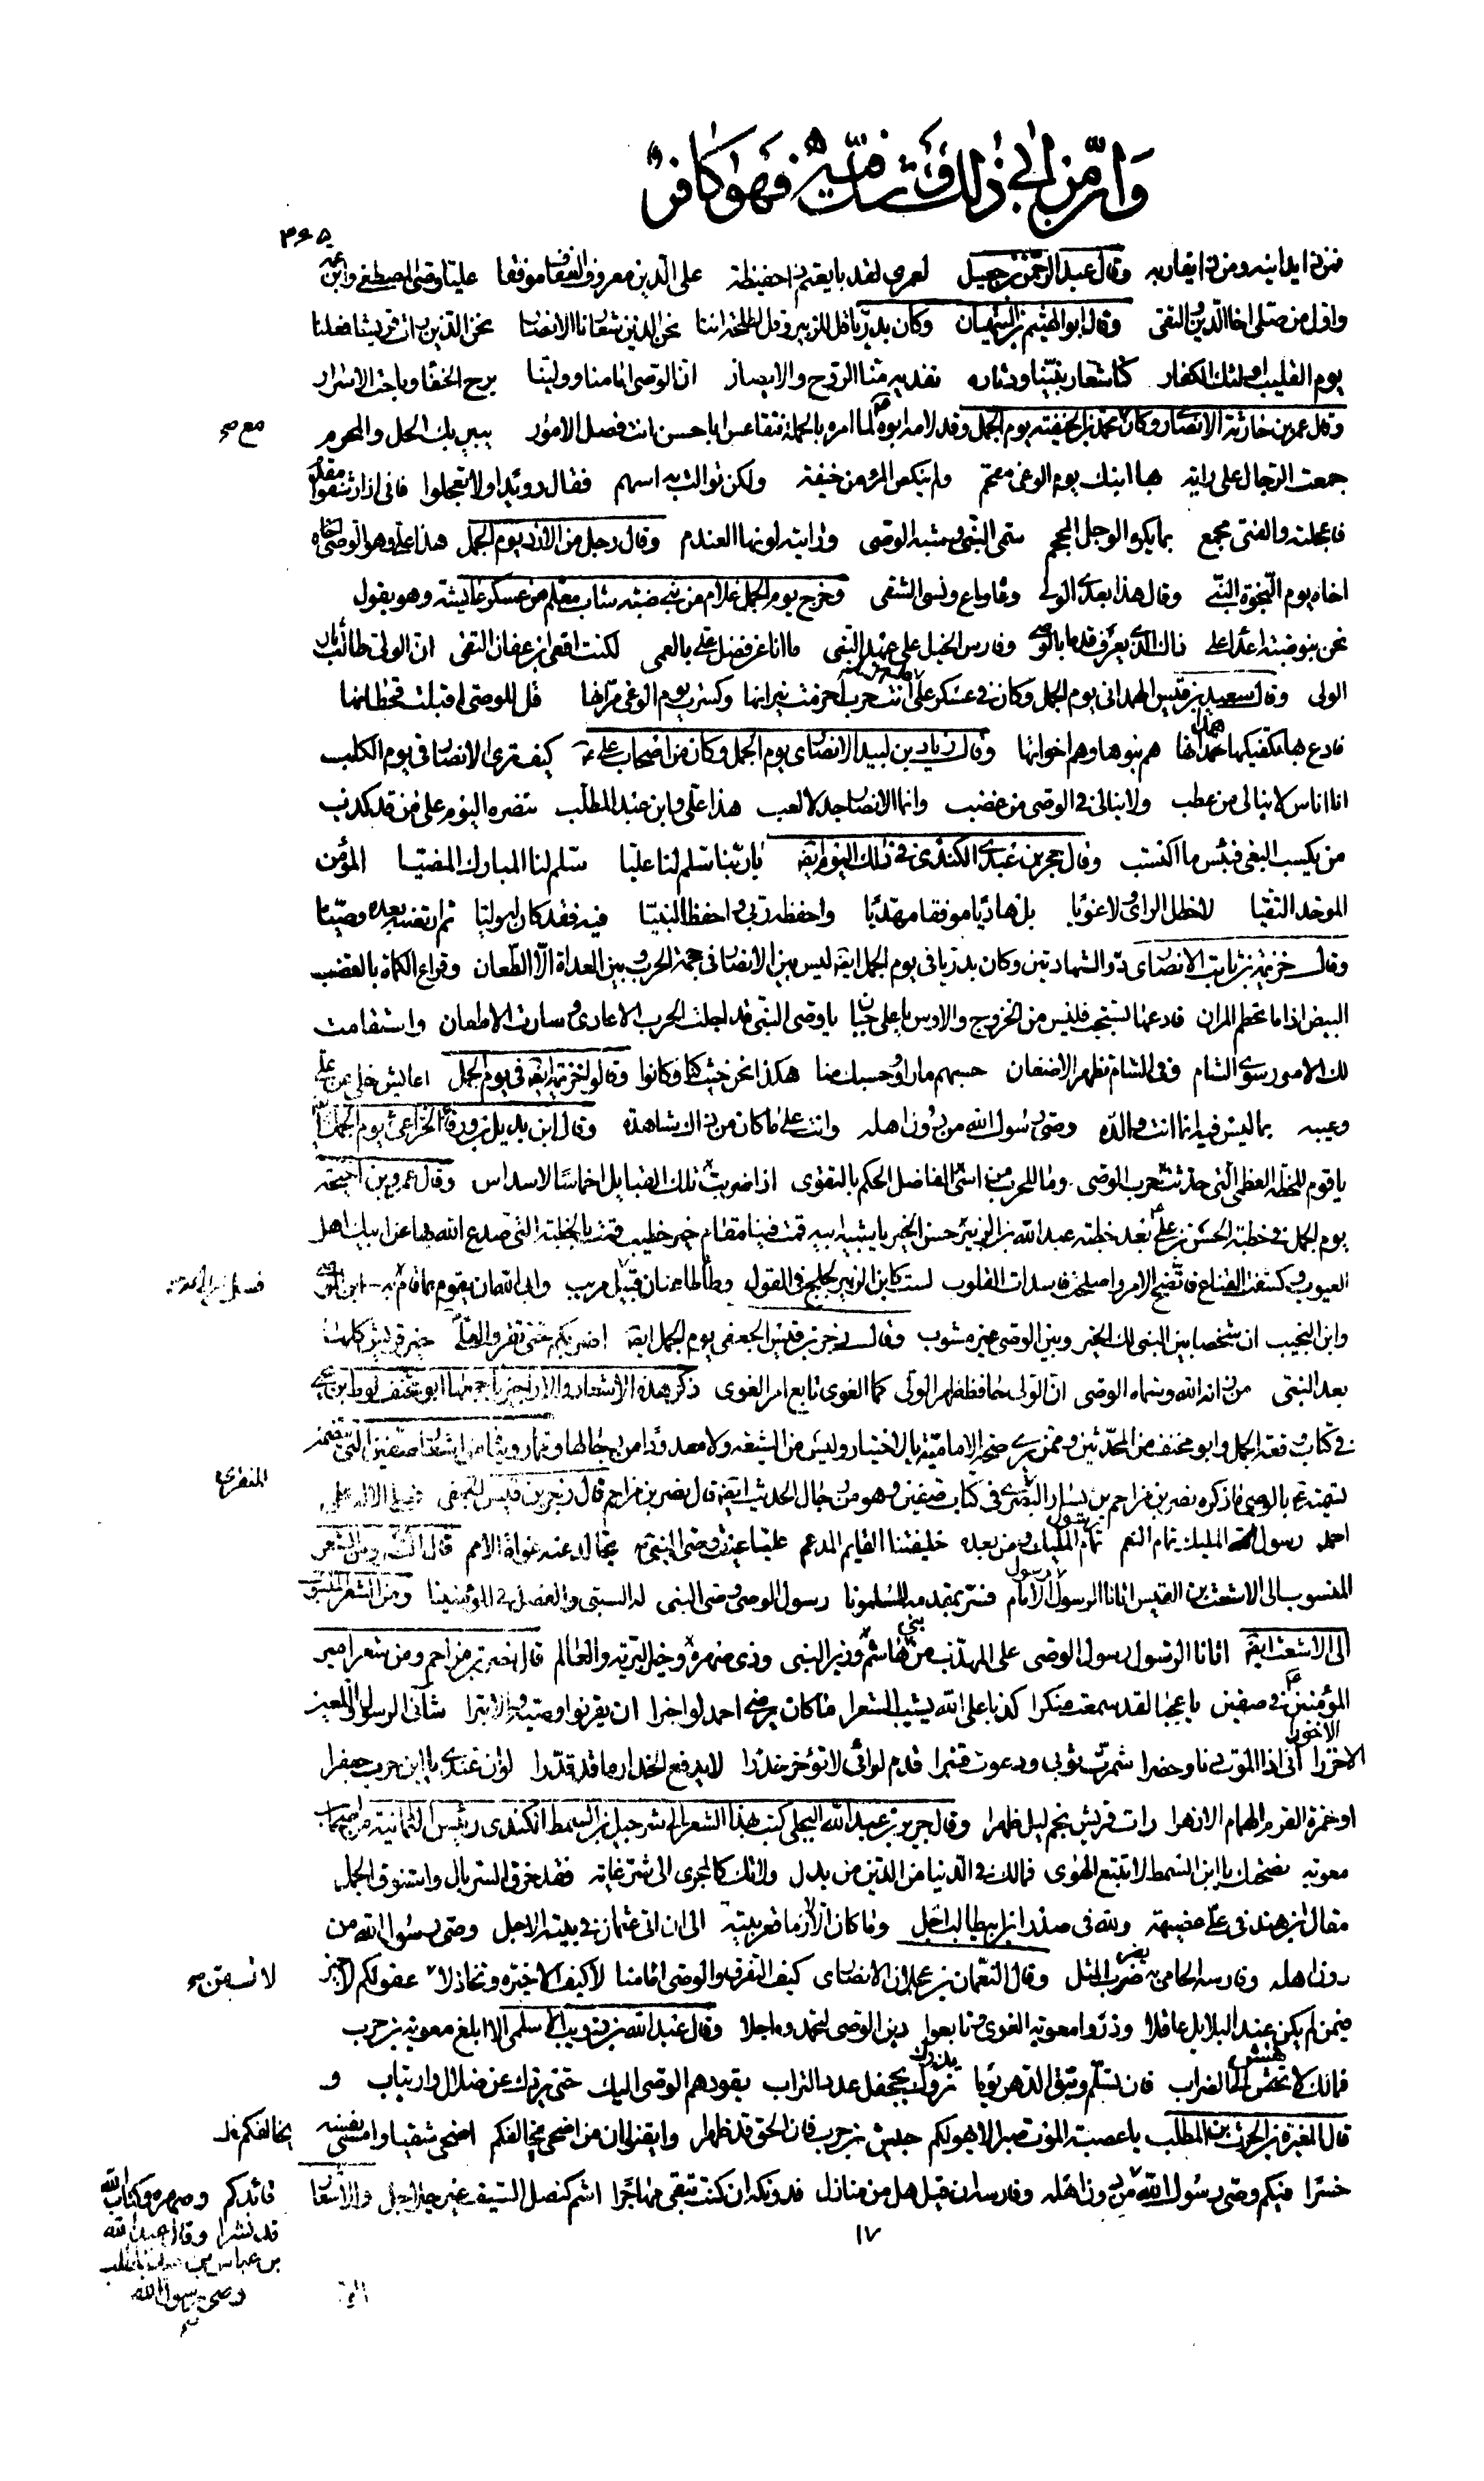 وانّ من ابى ذلك وشك فيه فهو كافر
٣٤٥
فمن ذا يدانيه ومن ذا يقاربه وقال عبد الرحمن بن جعيل لعمري لقد بايعتم ذا حفيظة على الدين معروف العفاف موفقا عليا وصى المصطفى وابن عمه
واول من صلى اخا الدين والتقى وقال ابو الهيثم بن التيهان وكان بدريا قل للزبير وقل لطلحة اننا نحن الذين شعارنا الانصار نحن الذين رات قريش فعلنا
يوم القليب اولئك الكفار كنا شعار نبينا ودثاره نفديه منا الروح والابصار ان الوصى امامنا وولينا برح الخفاء وباحت الاسرار
وقال عمر بن حارثة الانصارى وكان مع محمد بن الحنفية يوم الجمل وقد لامه ابوه لما امره بالحملة فتقاعس ابا حسن انت فصل الامور يبين بك الحل والمحرم
مع صح
جمعت الرجال على راية بها ابنك يوم الوغى مقحم ولم ينكص المرء من خيفة ولكن توالت به اسهم فقال رويدا ولا تعجلوا فانى اذا رشقوا مقدم
فاعجلته والفتى مجمع بما يكره الوجل المحجم سمى النبي وشبه الوصى ورايته لونها العندم وقال رجل من الازد يوم الجمل هذا على وهو الوصى اخاه
اخاه يوم النجوة النبي وقال هذا بعدي الولى وعاه واع ونسى الشقى وخرج يوم الجمل غلام من بني ضبة شاب معلم من عسكر عايشة وهو يقول
نحن بنو ضبة اعداء على ذاك الذي يعرف قدما بالوصي وفارس الخيل على عهد النبى ما انا عن فضل على بالعمى لكنني انعى ابن عفان التقى ان الولى طالب ثار
الولى وقال سعيد بن قيس الهمدانى يوم الجمل وكان فى عسكر على اية حرب اضرمت نيرانها وكسرت يوم الوغى مرانها قل للوصى اقبلت قحطانها
فادع بها تكفيكها همدانها هم بنوها وهم اخوانها وقال زياد بن لبيد الانصارى يوم الجمل وكان من اصحاب على كيف ترى الانصار فى يوم الكلب
انا اناس لا نبالى من عطب ولا نبالى فى الوصى من غضب وانما الانصار جد لا لعب هذا على وابن عبد المطلب ننصره اليوم على من قد كذب
من يكسب البغى فبئس ما اكتسب وقال حجر بن عدي الكندى فى ذلك اليوم ايضا يا ربنا سلم لنا عليا سلم لنا المبارك المضيا المؤمن
الموحد التقيا لا خطل الراى ولا غويا بل هاديا موفقا مهديا واحفظه ربى واحفظ النبيا فيه فقد كان له وليا ثم ارتضاه بعده وصيا
وقال خزيمة بن ثابت الانصارى ذو الشهادتين وكان بدريا فى يوم الجمل ايضا ليس بين الانصار فى جمحة الحرب وبين العداة الا الطعان وقراع الكماة بالقضب
البيض اذا ما تحطم المران فادعها تستجب فليس من الخزرج والاوس يا على جبان يا وصى النبى قد اجلت الحرب الاعادى وسارت الاظعان واستقامت
لك الامور سوى الشام وفى الشام تظهر الاضغان حسبهم ما راوا وحسبك منا هكذا نحن حيث كنا وكانوا وقال خزيمة ايضا فى يوم الجمل اعايش خلى عن على
وعيبه بما ليس فيه انما انت والده وصى رسول الله من دون اهله وانت على ما كان من ذاك شاهده وقال ابن بديل بن ورقاء الخزاعى يوم الجمل ايضا
يا قوم للخطة العظمى التي حدثت حرب الوصى وما للحرب من اسى الفاضل الحكم بالتقوى اذا ضربت تلك القبايل اخماسا لاسداس وقال عمرو بن احيحة
يوم الجمل فى خطبة الحسن بن على بعد خطبة عبد الله بن الزبير حسن الخير يا شبيه ابيه قمت فينا مقام خير خطيب قمت بالخطبة التى صدع الله بها عن ابيك اهل
العيوب وكشفت القناع فاتضح الامر واصلحت فاسدات القلوب لست كابن الزبير لجلج فى القول وطاطا عنان فسل مريب وابى الله ان يقوم بما قام به ابن الوصي
وابن النجيب ان شخصا بين النبى لك الخير وبين الوصى غير مشوب وقال زحر بن قيس الجعفى يوم الجمل ايضا اضربكم حتى تقروا لعلى خير قريش كلها
بعد النبى من زانه الله وسماه الوصى ان الولى حافظ ظهر الولى كما الغوى تابع امر الغوى ذكر هذه الاشعار والاراجيز باجمعها ابو مخنف لوط بن يحيى
فى كتاب وقعة الجمل وابو مخنف من المحدثين وممن يرى صحة الامامة بالاختيار وليس من الشيعة ولا معدودا من رجالها ومما رويناه من اشعار صفين التى تتضمن
تسميته بالوصى ما ذكره نصر بن مزاحم بن يسار المنقرى فى كتاب صفين وهو من رجال الحديث ايضا قال نصر بن مزاحم قال زحر بن قيس الجعفى فصلى الاله على
المنقرى
احمد رسول المليك تمام النعم رسول المليك ومن بعده خليفتنا القايم المدعم عليا عنيت وصى النبى يجالد عنه غواة الامم قال نصر ومن الشعر
المنسوب الى الاشعث بن القيس اتانا الرسول رسول الامام فسر بمقدمه المسلمونا رسول الوصى وصى النبى له السبق والفضل فى المؤمنينا ومن الشعر المنسوب
الى الاشعث ايضا اتانا الرسول رسول الوصى على المهذب من هاشم وزير النبى وذى صهره وخير البرية والعالم قال نصر بن مزاحم ومن شعر امير
المؤمنين فى صفين يا عجبا لقد سمعت منكرا كذبا على الله يشيب الشعرا ما كان يرضى احمد لو اخبرا ان يقرنوا وصيه والابترا شانى الرسول واللعين
الاخزرا انى اذا الموت دنا وحضرا شمرت ثوبى ودعوت قنبرا قدم لوائى لا تؤخر حذرا لا يدفع الحذار ما قد قدرا لو ان عندى يا ابن حرب جعفرا
او حمزة القرم الهمام الازهرا رات قريش نجم ليل ظهرا وقال جرير بن عبد الله البجلى كتب بهذا الشعر الى شرحبيل بن السمط الكندى رئيس اليمانية من اصحاب
معوية نصحتك يا ابن السمط لا تتبع الهوى فمالك فى الدنيا من الدين من بدل ولا تك كالمجرى الى شر غاية فقد خرق السربال واستنوق الجمل
مقال ابن هند فى على عضيهة ولله فى صدر ابن ابيطالب اجل وما كان الا لازما قعر بيته الى ان اتى عثمان فى بيته الاجل وصى رسول الله من
دون اهله وفارسه الحامى به يضرب المثل وقال النعمان بن عجلان الانصارى كيف التفرق والوصى امامنا لا كيف الا حيرة وتخاذلا عقولكم لا خير
فيمن لم يكن عند البلابل عاقلا وذروا معوية الغوى وتابعوا دين الوصى لتحمدوه اجلا وقال عبد الله بن ذويب الاسلمى الا ابلغ معوية بن حرب
فمالك لا تهش الى الضراب فان تسلم وتبقى الدهر يوما نزرك بجحفل عدد التراب يقودهم الوصى اليك حتى يردك عن ضلال وارتياب و
قال المغيرة بن الحرث بن المطلب يا عصبة الموت صبرا لا يهولكم جيش بن حرب فان الحق قد ظهرا وايقنوا ان من اضحى يخالفكم اضحى شقيا وامسى نفسه
يخالفكم
خسرا فيكم وصى رسول الله من دون اهله وفارسه ان قيل هل من منازل فدونكه ان كنت تبغى مهاجرا اشم كنصل السيف عير حلاحل والاشعار
قائدكم وصهره وكتاب الله
قد نشرا وقال عبد الله
بن عباس بن عبد المطلب
وصى رسول الله
١٧